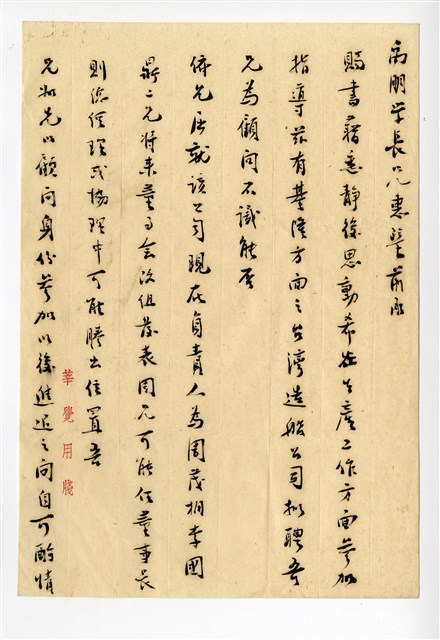 鵬學長兄惠鑒前承
賜書藉悉靜後思動希在生產工作方面參加
指導茲有基隆方面之台灣造船公司擬聘吾
兄為顧問不識能否
俯允屈就該公司現在負責人為周茂柏李國
鼎二兄將來董事會改組發表周兄可能任董事長
則總經理或協理中可能騰出位置吾
兄如先以顧問身份參加以後進退之間自可酌情
華覺用牋